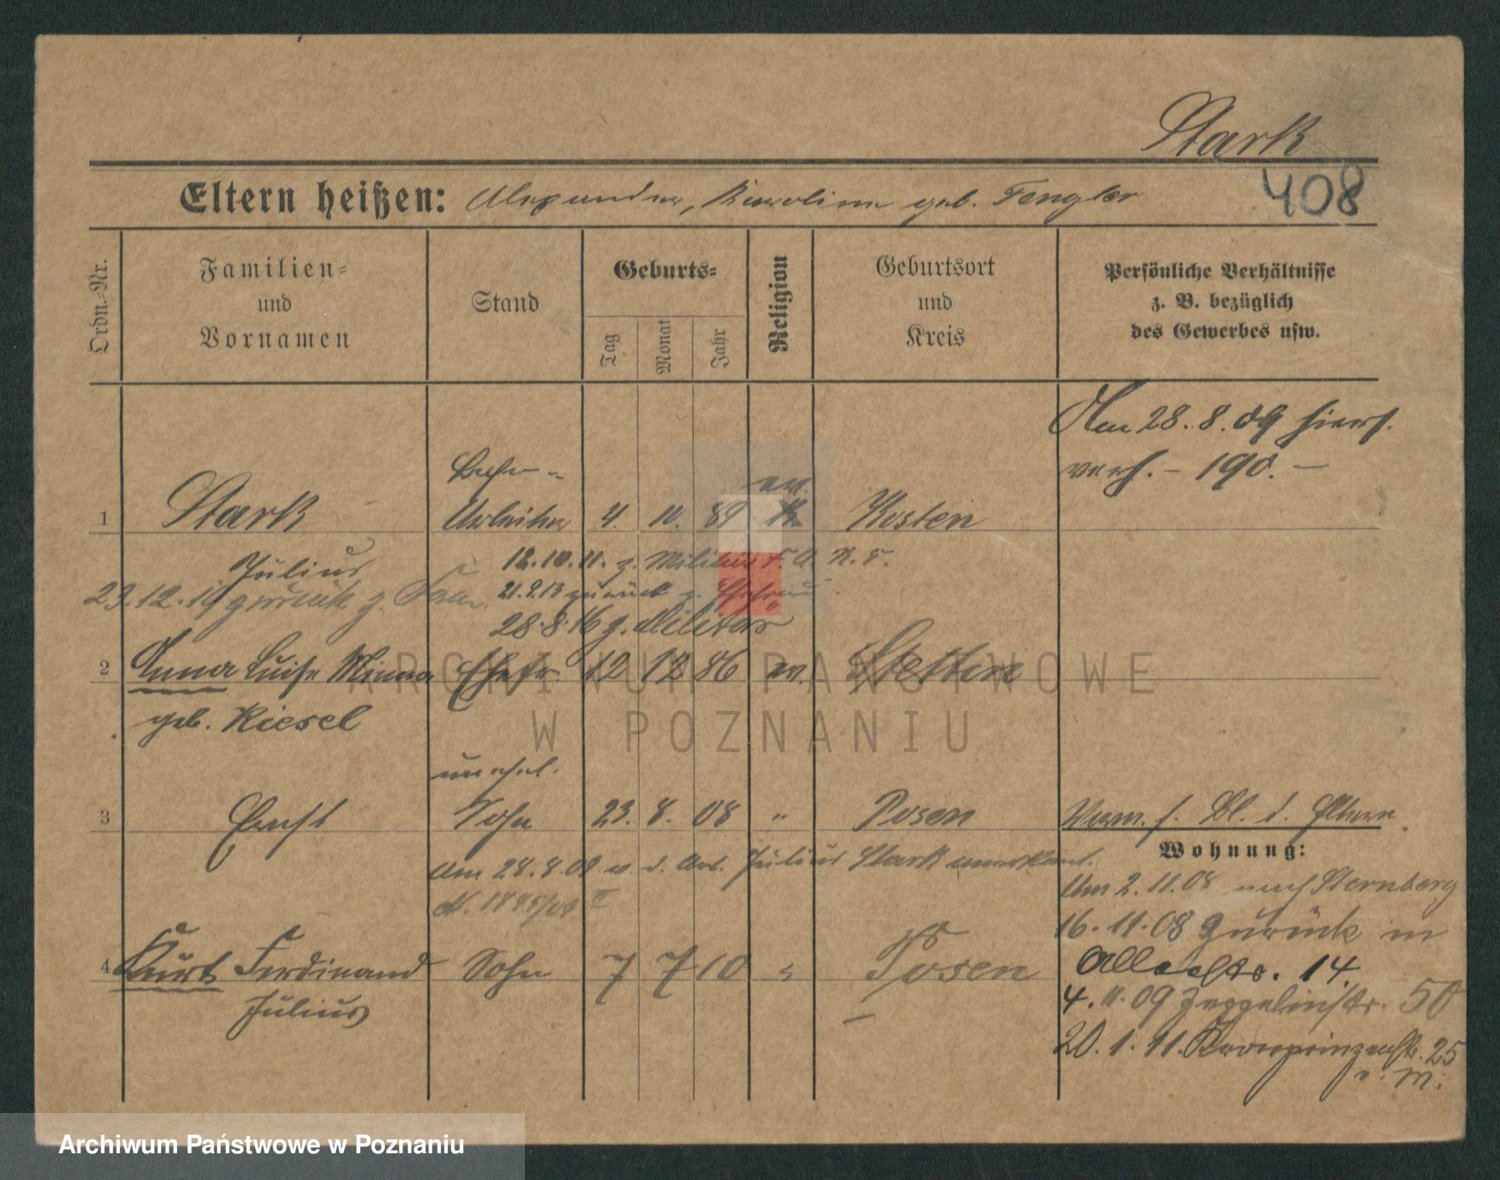 Stark
Eltern heißen: Alexander, Karoline geb. Fengler
408
Ordn.-Nr.
Familien-
und
Vornamen
Stand
Geburts-
Tag
Monat
Jahr
Religion
Geburtsort
und
Kreis
Persönliche Verhältnisse
z. B. bezüglich
des Gewerbes usw.
Am 28.8.09 hiers.
verh. – 190. –
ev.
1 Stark 4. 10. 89 Kosten
Julius
12.10.11. z. Militär F. A. R. 5.
23.12.18 zurück z. Fam.
21.9.13 zurück z. Ehefrau
28.8.16 z. Militär
2 Anna Luise Minna Ehefr. 12 12 86 ev. Stettin
geb. Riesel
unehel.
3 Ernst Sohn 23. 8. 08 " Posen
Verm. s. Bl. d. Eltern.
Wohnung:
Am 28.8.09 v. d. Arb. Julius Stark anerkannt.
Am 2.11.08 nach Sternberg
16.11.08 zurück in
4 Kurt Ferdinand Sohn 7 7 10 " Posen
Julius
14.
4.11.09 Zeppelinstr. 50
20.1.11. Kronprinzenstr. 25
b. M.
ARCHIWUM PAŃSTWOWE
W POZNANIU
Archiwum Państwowe w Poznaniu